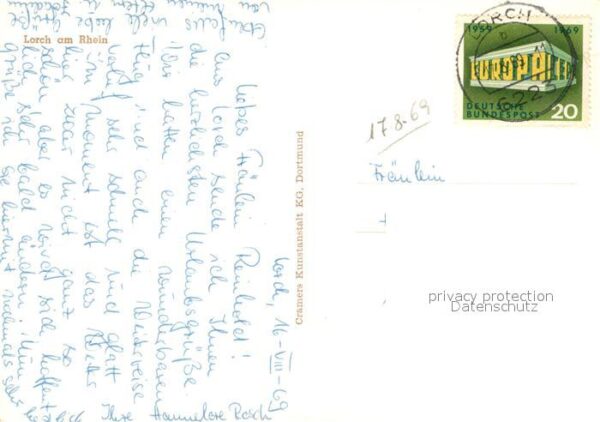 Lorch am Rhein
Lorch, 16-VIII-69
Liebes Fräulein Reinhold!
Aus Lorch sende ich Ihnen
die herzlichsten Urlaubsgrüße.
Wir hatten einen wunderbaren
Flug und auch die Weiterreise
verlief sehr schnell und glatt
Im Moment ist das Wetter
hier zwar nicht ganz so
schön, aber es wird sich hoffent
lich sehr bald ändern. Nun
grüße ich Sie hiermit nochmals sehr
herzlich Ihre Hannelore Bosch
Cramers Kunstanstalt KG, Dortmund
LORCH
1959 1969
EUROPA CEPT
DEUTSCHE
BUNDESPOST 20
17.8.69
Fräulein
privacy protection
Datenschutz